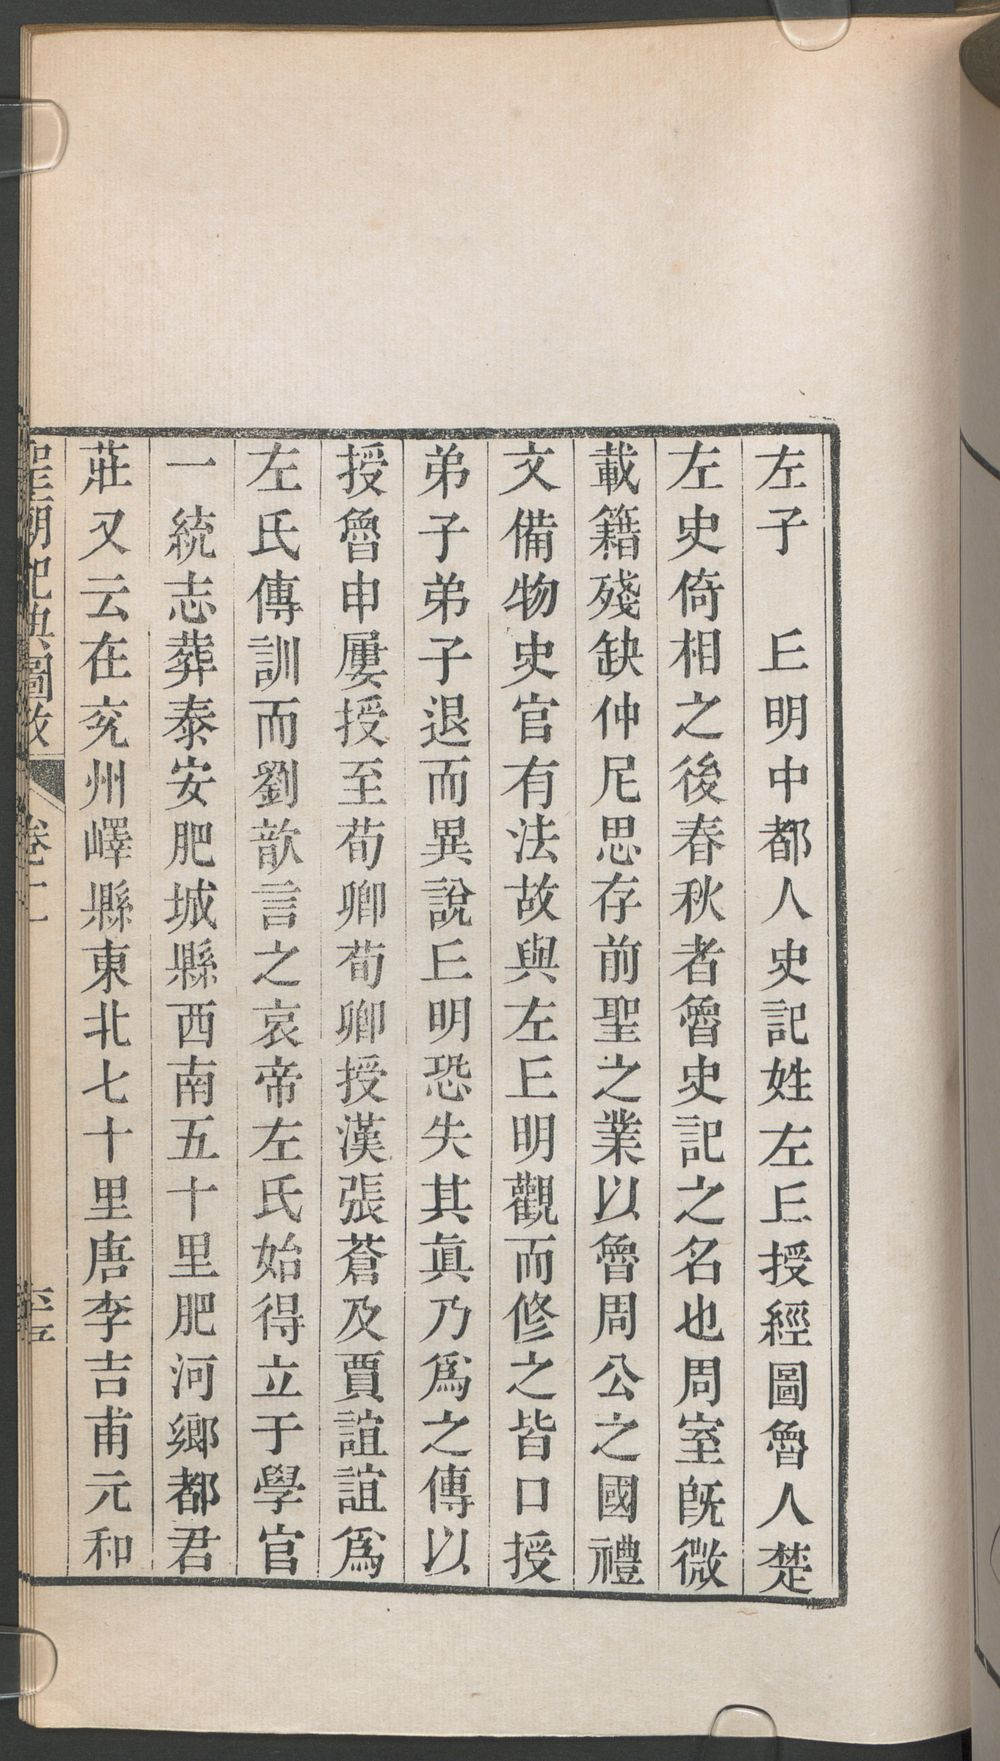 左子　𠀉明中都人史記姓左𠀉授經圖魯人楚
左史倚相之後春秋者魯史記之名也周室旣微
載籍殘缺仲尼思存前聖之業以魯周公之國禮
文備物史官有法故與左𠀉明觀而修之皆口授
弟子弟子退而異說𠀉明恐失其眞乃爲之傳以
授魯申屢授至荀卿荀卿授漢張蒼及賈誼誼爲
左氏傳訓而劉歆言之哀帝左氏始得立于學官
一統志葬泰安肥城縣西南五十里肥河鄉都君
莊又云在兖州嶧縣東北七十里唐李吉甫元和
聖廟祀典圖攷　卷二